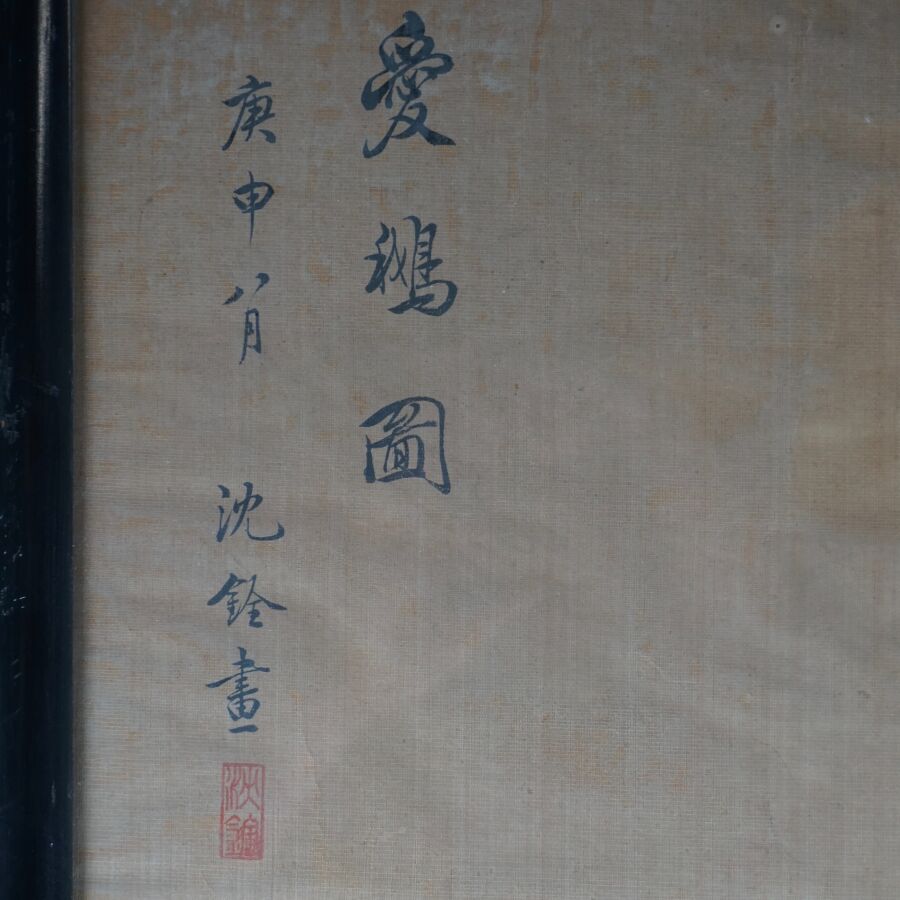 愛鵝圖
庚申八月 沈銓畫
沈銓